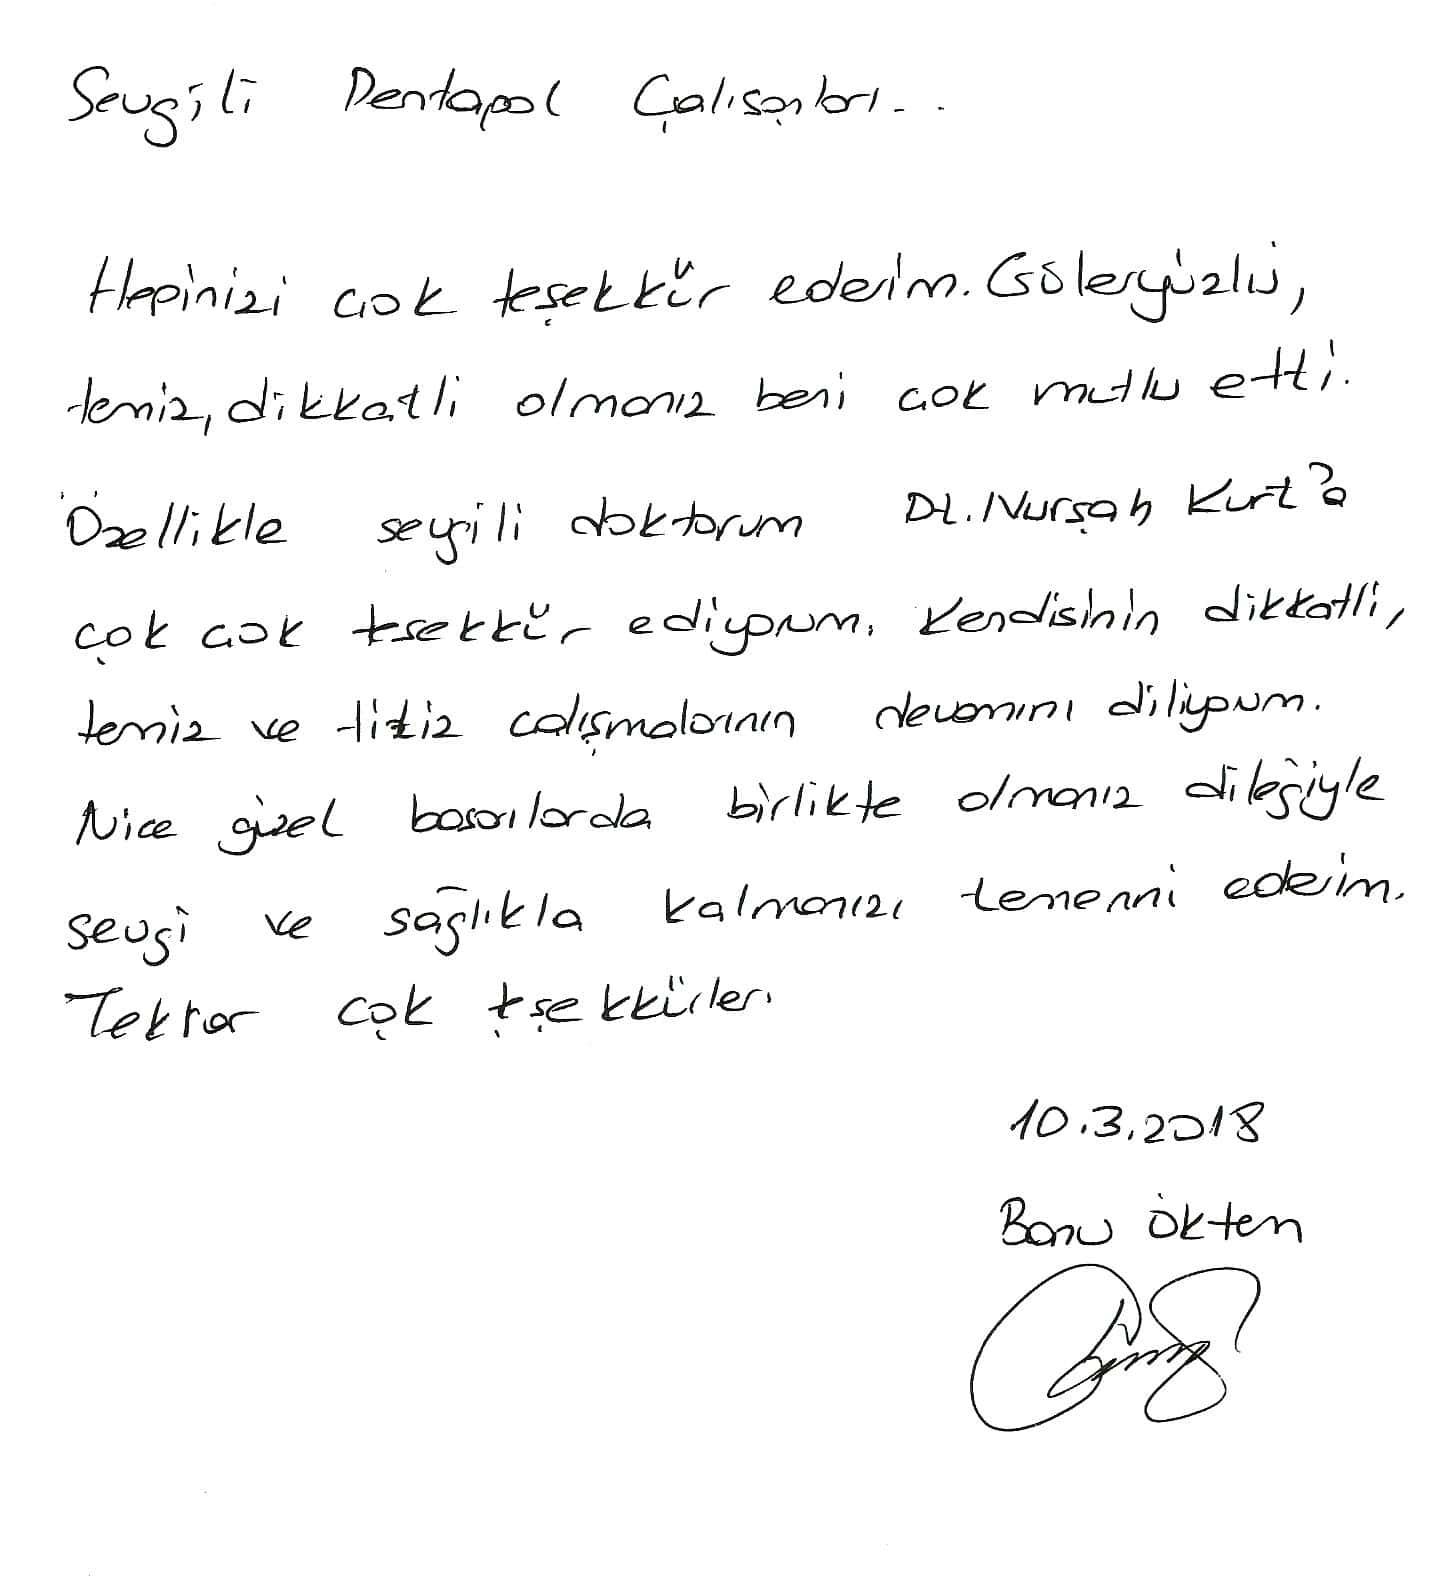 Sevgili Dentapol Çalışanları..
Hepinizi çok teşekkür ederim. Göleryüzlü,
temiz, dikkatli olmanız beni çok mutlu etti.
Özellikle sevgili doktorum Dt. Nurşah Kurt'a
çok çok tşekkür ediyorum. Kendisinin dikkatli,
temiz ve titiz calışmalarının devamını diliyorum.
Nice güzel basarılarda birlikte olmanız dileğiyle
sevgi ve sağlıkla kalmanızı temenni ederim.
Tekrar çok tşekkürler.
10.3.2018
Banu Ökten